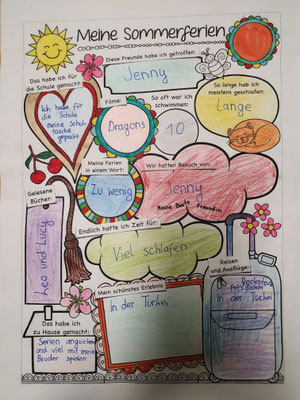 Meine Sommerferien
Das habe ich für
die Schule gemacht:
Ich habe für
die Schule
meine Schul-
tasche
gepackt
Diese Freunde habe ich getroffen:
Jenny
Filme:
Dragons
So oft war ich
schwimmen:
10
So lange hab ich
meistens geschlafen:
Lange
Meine Ferien
in einem Wort:
Zu wenig
Wir hatten Besuch von:
Jenny
Meine Beste Freundin
Gelesene
Bücher:
Leo und Lucy
Endlich hatte ich Zeit für:
Viel schlafen
Mein schönstes Erlebnis
in der Türkei
Reisen
und Ausflüge:
In der Türkei
Das habe ich
zu Hause gemacht:
Serien angucken
und viel mit mein
Bruder spielen